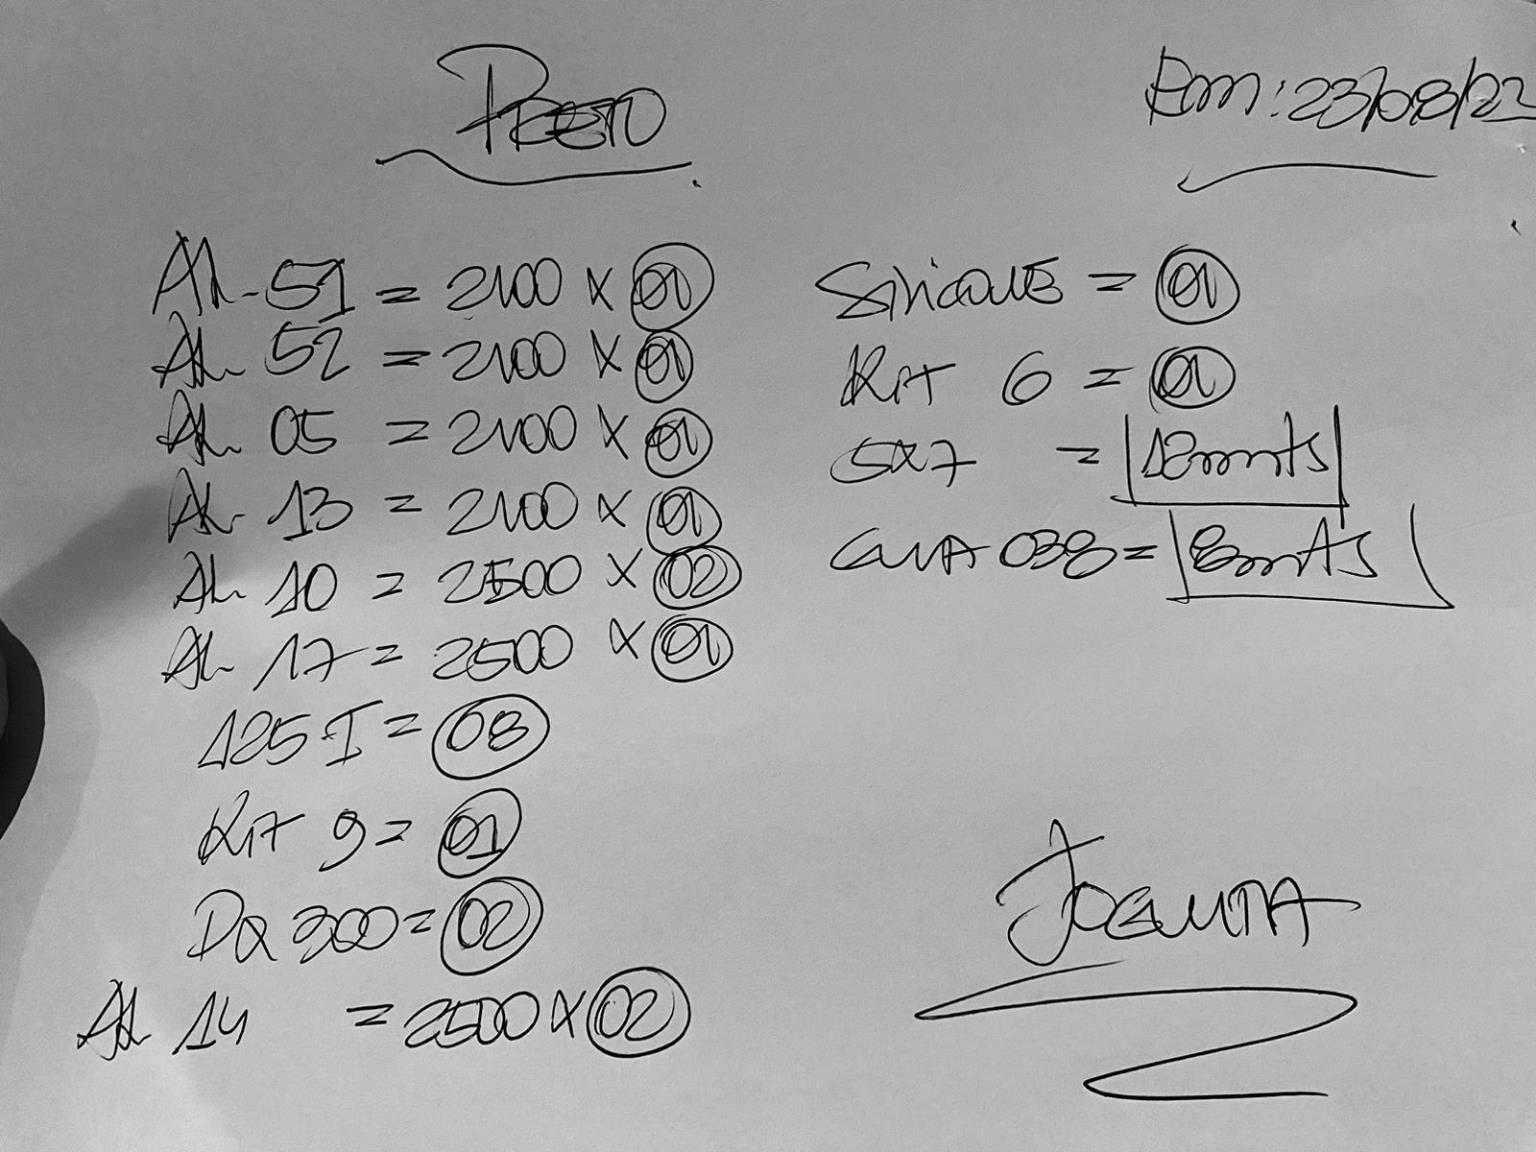 Preto
Em: 23/08/22
AL-51 = 2100 x 01
AL 52 = 2100 x 01
AL 05 = 2100 x 01
AL 13 = 2100 x 01
AL 10 = 2500 x 02
AL 17 = 2500 x 01
125 I = 08
Kit 9 = 01
DQ 300 = 02
AL 14 = 2500 x 02
= 01
Kit 6 = 01
5x7 = 12mts
038 = 8mts